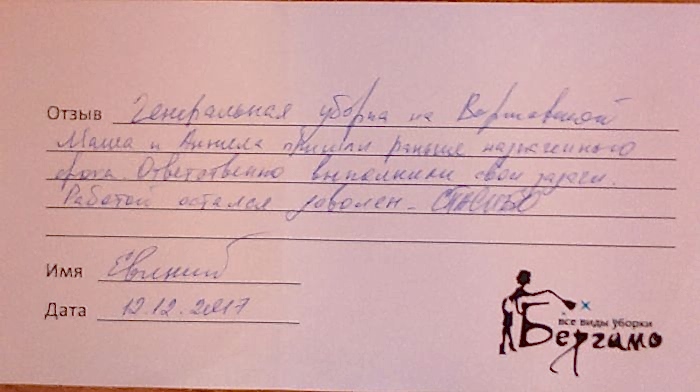 Отзыв Генеральная уборка на Варшавской
Маша и Анжела пришли раньше назначенного
срока. Ответственно выполнили свои задачи.
Работой остался доволен - СПАСИБО
Имя Евгений
Дата 12.12.2017
все виды уборки
Бергамо